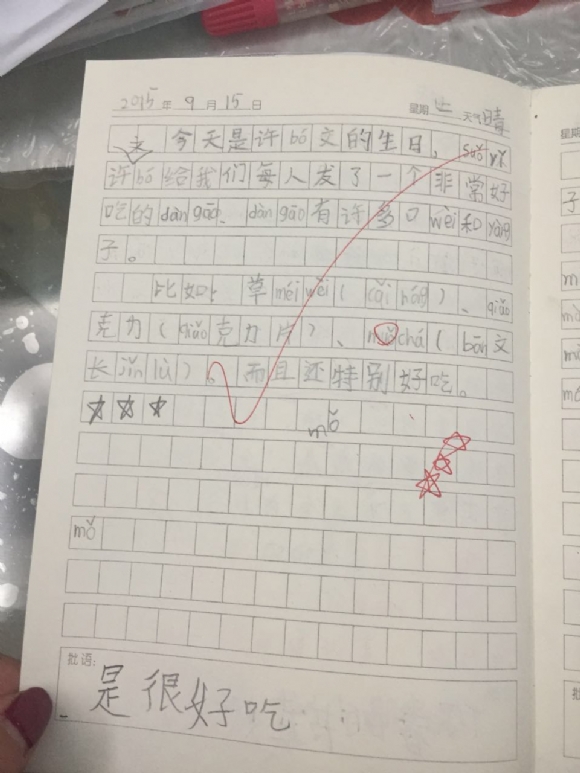 2015年9月15日 星期二 天气晴
今天是许bó文的生日，suǒ yǐ
许bó给我们每人发了一个非常好
吃的dàn gāo、dàn gāo有许多口wèi和yàng
子。
比如 草méi wèi（cǎi hóng）、qiǎo
克力（qiǎo克力片）、mǒ chá（bān文
长jǐn lù）。而且还特别好吃。
mǒ
mǒ
批语：
是很好吃